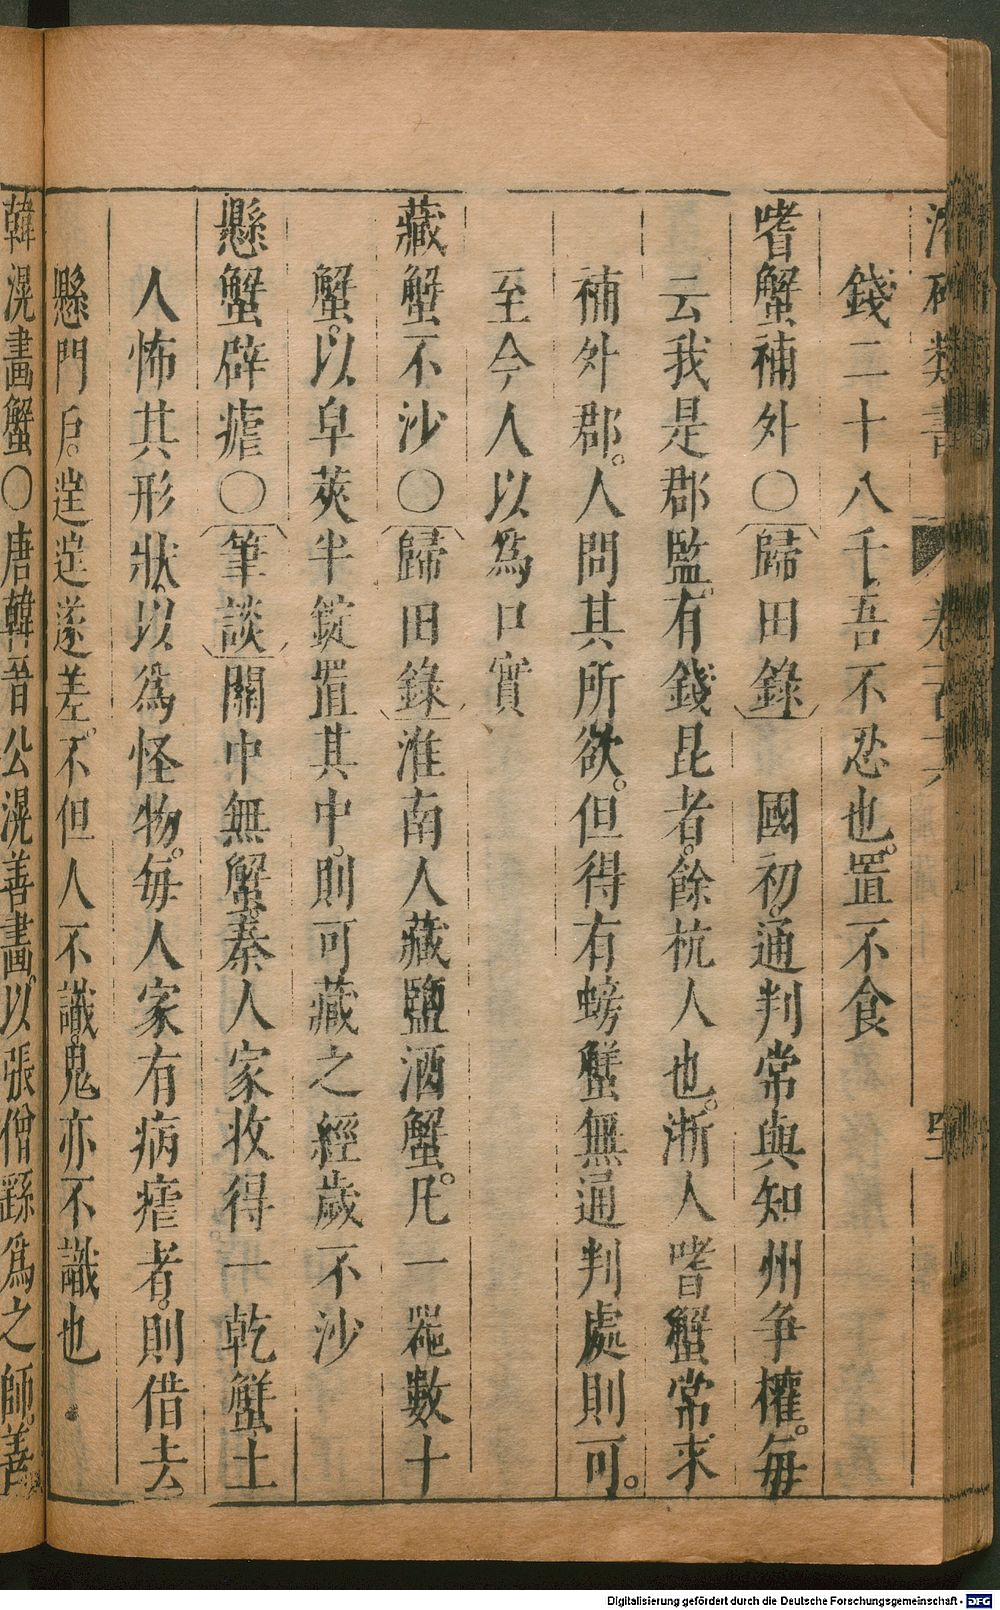 類書 卷
錢二十八千。吾不忍也。置不食
嗜蟹補外〇歸田錄 國初。通判常與知州爭權。每
云我是郡監。有錢昆者。餘杭人也。浙人嗜蟹常求
補外郡。人問其所欲。但得有螃蟹無通判處則可。
至今人以爲口實
藏蟹不沙〇歸田錄淮南人藏鹽酒蟹。凡一噐數十
蟹。以皁莢半錠置其中。則可藏之經歲不沙
懸蟹辟瘧〇筆談關中無蟹。秦人家收得一乾蟹土
人怖其形狀。以爲怪物。每人家有病瘧者。則借去。
懸門戶。遑遑遂差。不但人不識。鬼亦不識也
韓滉畫蟹〇唐韓晉公滉善畫。以張僧繇爲之師。善
Digitalisierung gefördert durch die Deutsche Forschungsgemeinschaft - DFG